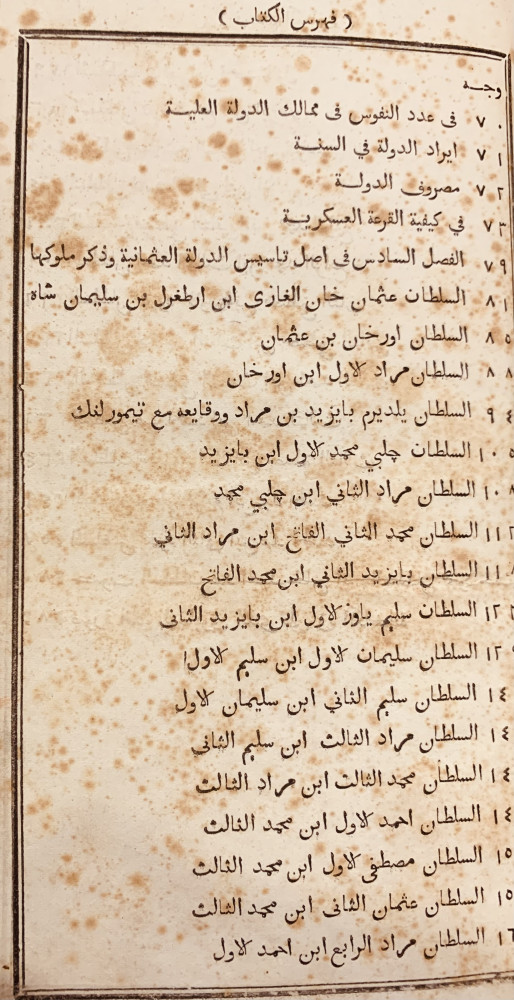 ( فهرس الكتاب )
وجه
٧٠ فى عدد النفوس فى ممالك الدولة العلية
٧١ ايراد الدولة في السنة
٧٢ مصروف الدولة
٧٣ في كيفية القرعة العسكرية
٧٩ الفصل السادس فى اصل تاسيس الدولة العثمانية وذكر ملوكها
٨١ السلطان عثمان خان الغازى ابن ارطغرل بن سليمان شاه
٨٥ السلطان اورخان بن عثمان
٨٨ السلطان مراد الاول ابن اورخان
٩٤ السلطان يلديرم بايزيد بن مراد ووقايعه مع تيمورلنك
١٠٥ السلطان چلبي محمد الاول ابن بايزيد
١٠٨ السلطان مراد الثاني ابن چلبي محمد
١١ السلطان محمد الثاني الفاتح ابن مراد الثاني
١١ السلطان بايزيد الثاني ابن محمد الفاتح
١٢ السلطان سليم ياوز الاول ابن بايزيد الثانى
١٢ السلطان سليمان الاول ابن سليم الاول
١٤ السلطان سليم الثاني ابن سليمان الاول
١٤ السلطان مراد الثالث ابن سليم الثاني
١٤ السلطان محمد الثالث ابن مراد الثالث
١٤ السلطان احمد الاول ابن محمد الثالث
١٥ السلطان مصطفى الاول ابن محمد الثالث
١٥ السلطان عثمان الثانى ابن محمد الثالث
١٦ السلطان مراد الرابع ابن احمد الاول